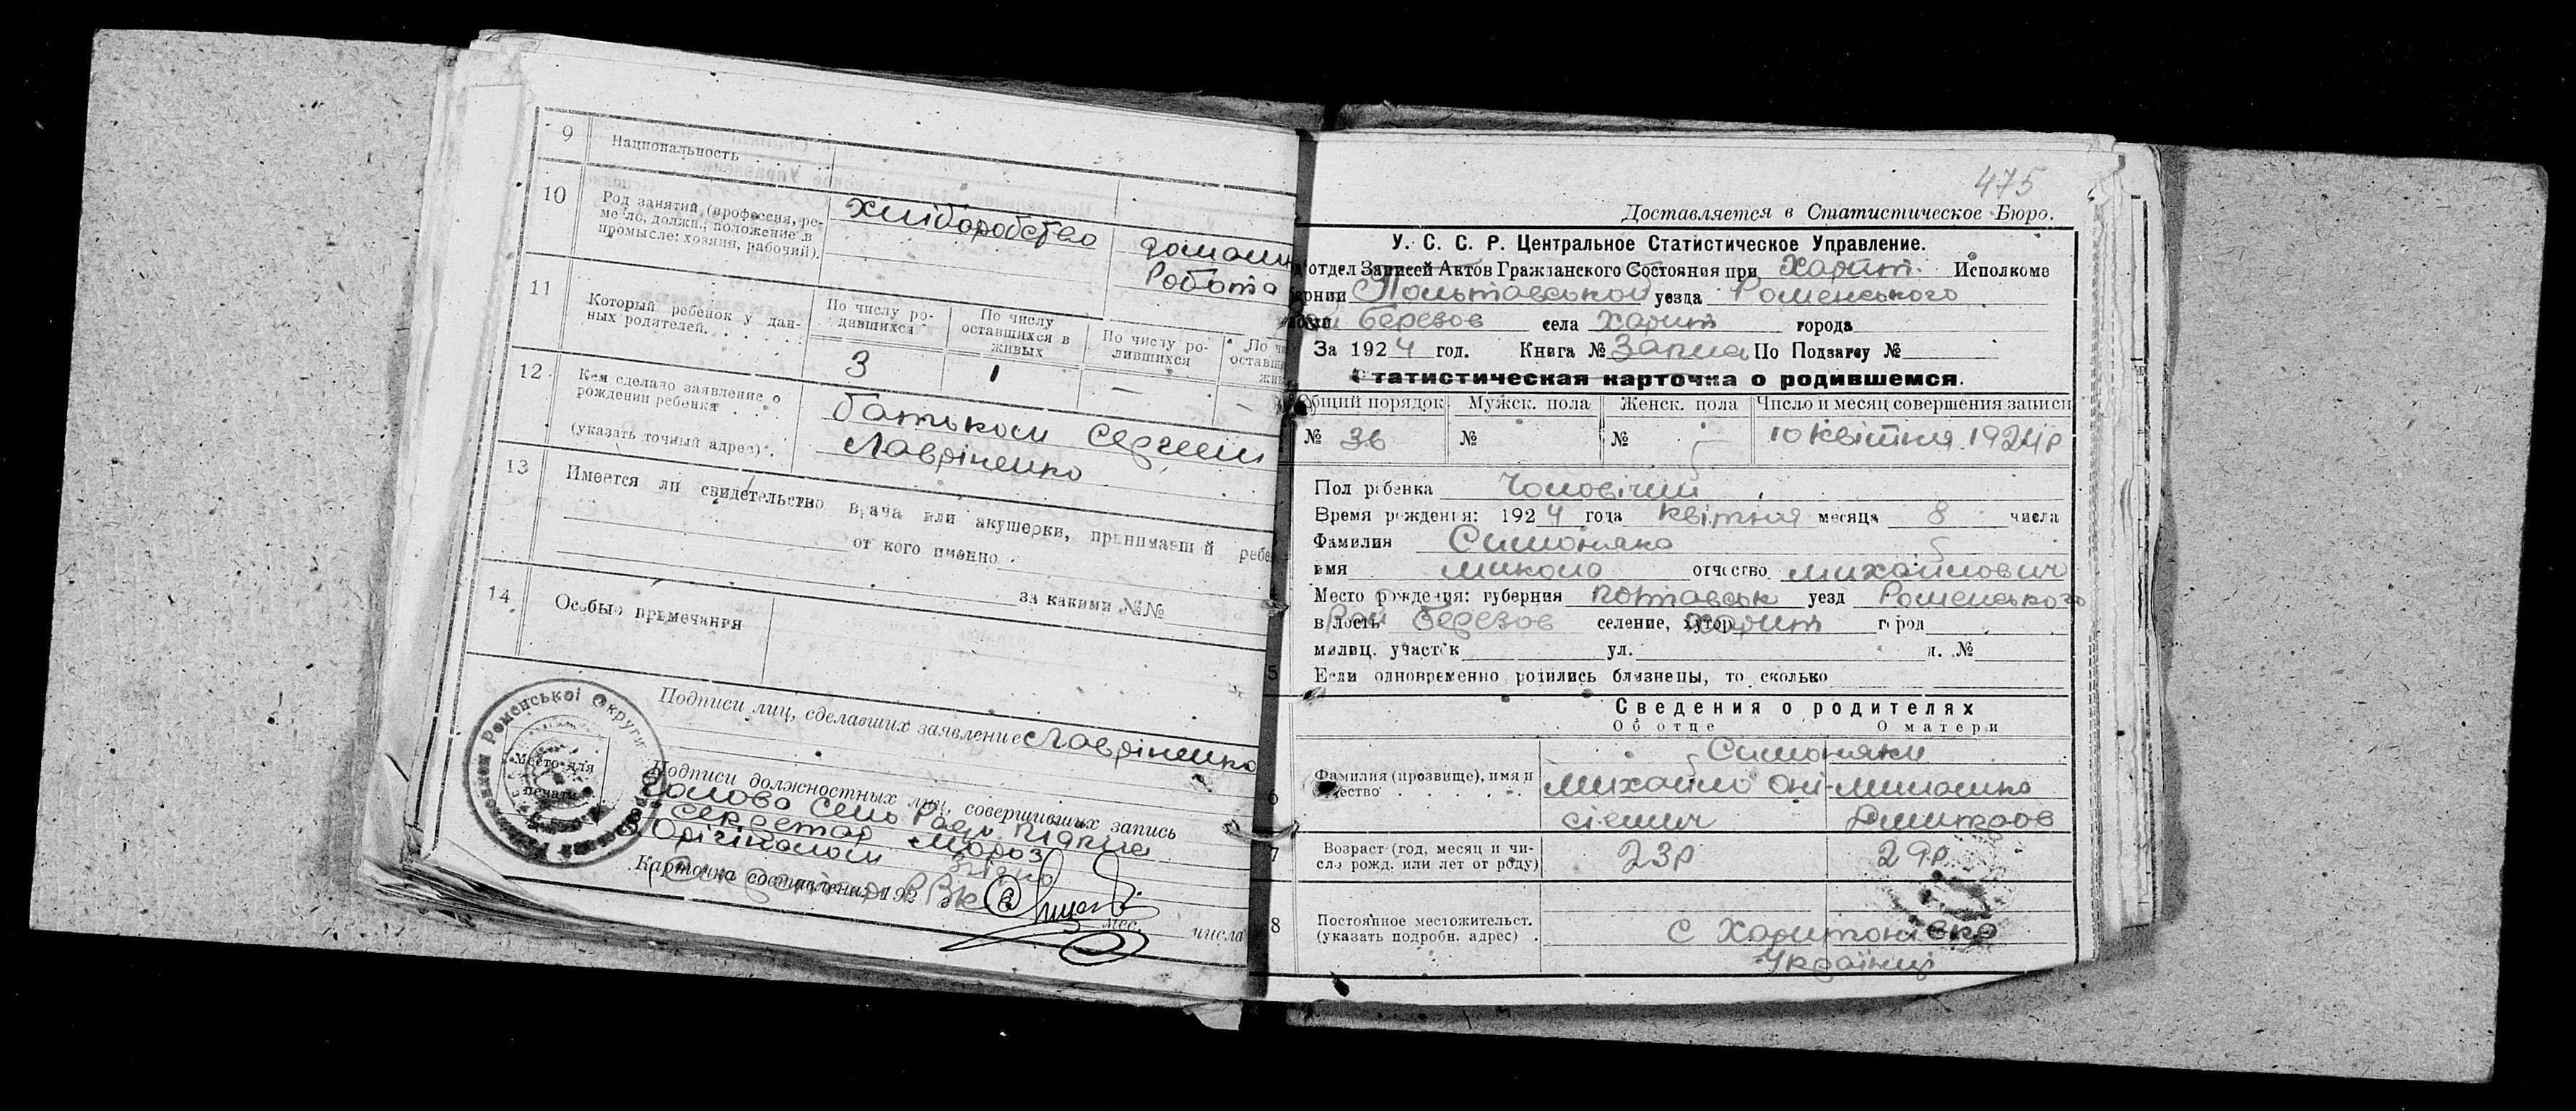 9 Национальность
10 Род занятий (профессия, ре-
ме ло, должн., положение в
промысле: хозяин, рабочий).
хліборобство
Робота
11 Который ребенок у дан-
ных родителей.
По числу ро-
дившихся
По числу
оставшихся в
живых
По числу ро-
дившихся
3 1 — —
12 Кем сделано заявление о
рождении ребенка
(указать точный адрес).
батьком Сергеем
Лавріненко
13 Имеется ли свидетельство врача или акушерки, принимавш й
от кого именно
за какими №№
14 Особые примечания
Подписи лиц, сделавших заявление Лавріненко
Подписи должностных лиц, совершивших запись
Голова Сель Ради
Секретар Мороз
З Орігіналом згідно
Карточка составлена: 192
мес. числа
Роменської Округи
Место для
печати
475
Доставляется в Статистическое Бюро.
У. С. С. Р. Центральное Статистическое Управление.
отдел Записей Актов Гражданского Состояния при Харит. Исполкоме
Полтавської уезда Роменського
Березов села Харит города
За 1924 год. Книга № По Подзагсу №
Статистическая карточка о родившемся.
Общий порядок Мужск. пола Женск. пола Число и месяц совершения записи
№ 36 № № 10 Квітня 1924р
Пол ребенка Чоловічий
Время рождения: 1924 года Квітня месяца 8 числа
Фамилия Симоняко
имя Микола отчество Михайлович
Место рождения: губерния Потавськ уезд Роменського
волость Рай Березов селение, хутор Харит город
милиц. участок ул. д. №
5 Если одновременно родились близнецы, то сколько
Сведения о родителях
Об отце О матери
6 Фамилия (прозвище), имя и
отчество
Симоняки
Михайло Оні-
сієвич
Дмитров
7 Возраст (год, месяц и чи-
сло рожд. или лет от роду)
23р 29р
8 Постоянное местожительст.
(указать подробн. адрес)
с Харитонівка
Українці